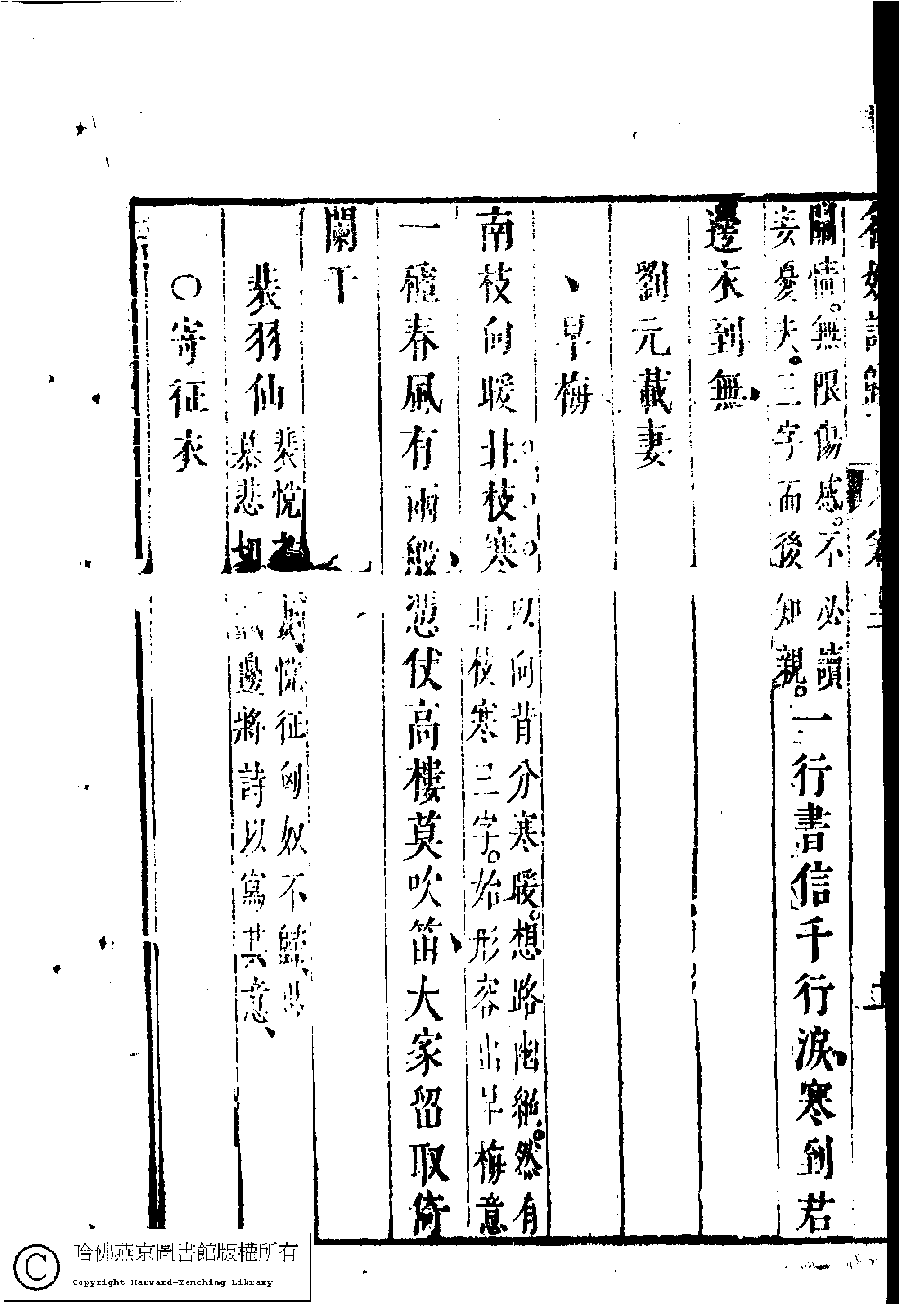 名媛詩歸
關情。無限傷感。不必讀
妾憂夫。三字而後知親。
一行書信千行淚寒到君
邊衣到無
劉元載妻
、早梅
南枝向暖北枝寒
以向昔分寒暖。想路幽細。然有
北枝寒三字。始形容出早梅意
一種春風有兩般憑仗高樓莫吹笛大家留取倚
闌干
裴羽仙
裴悅 悅征匈奴不歸
慕悲切 邊將詩以寫其意、
○寄征衣
哈佛燕京圖書館版權所有
Copyright Harvard-Yenching Library